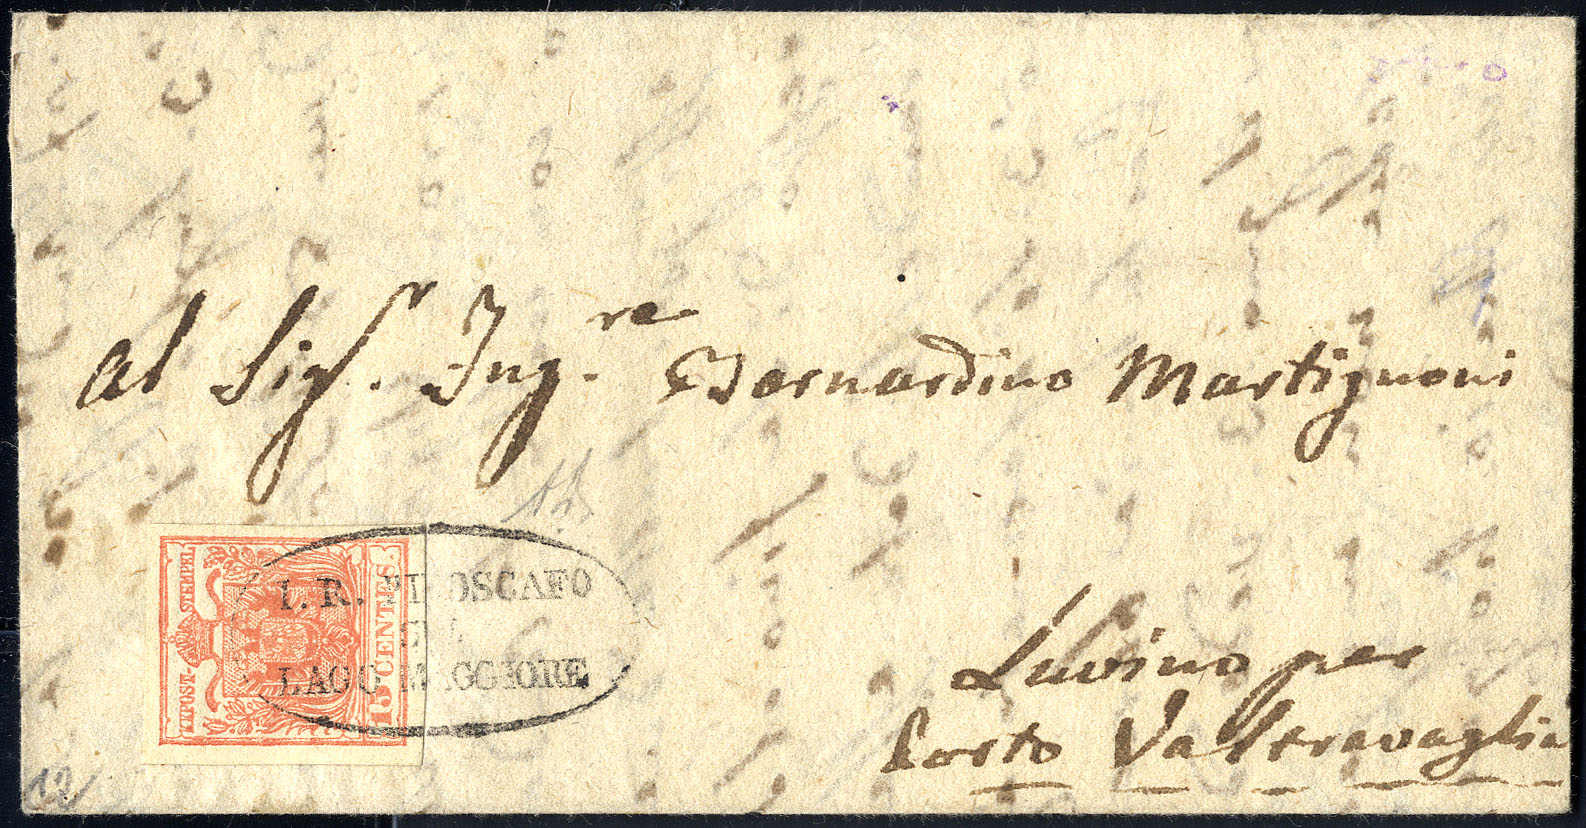 Al Sigr. Ingre. Bernardino Martignoni
KKPOST-STEMPEL
15 CENTES.
I. R. PIROSCAFO
SUL
LAGO MAGGIORE
Luvino per
Porto Valtravaglia
12